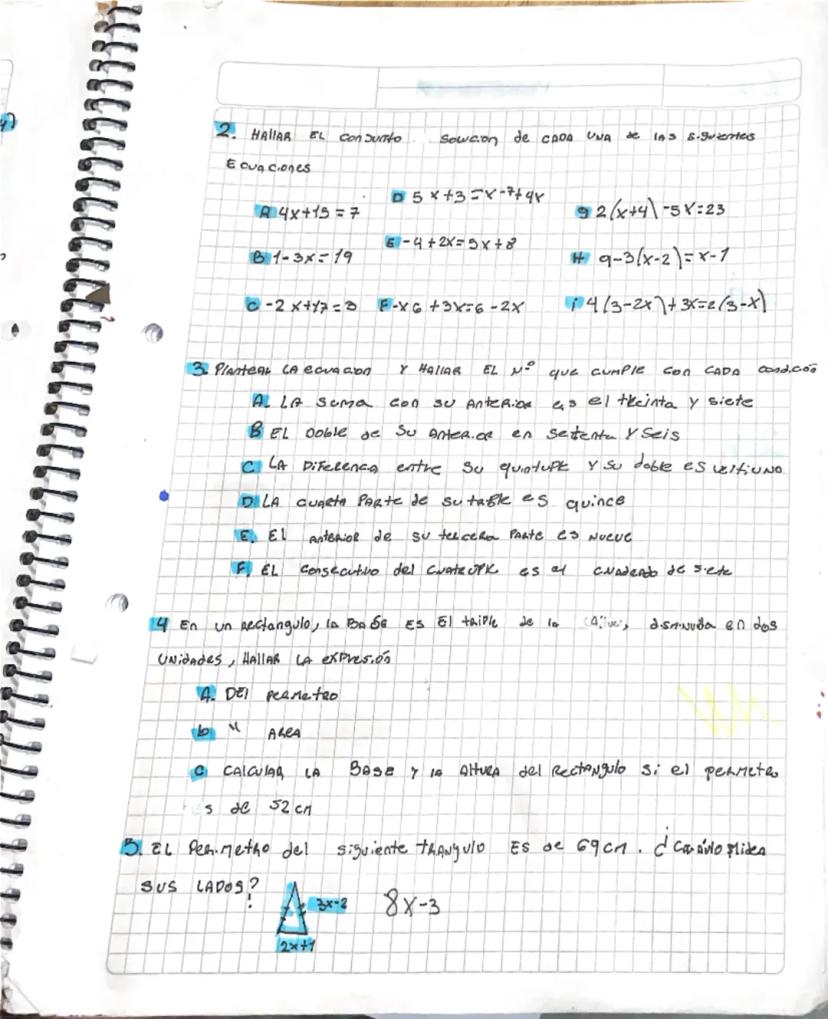 2. HALLAR EL CONJUNTO SOLUCION de CADA UNA de las siguientes
ECUACIONES
A 4x+15=7
D 5x+3=x-7+4x
g 2(x+4)-5x=23
B 1-3x=19
E -4+2x=5x+8
H 9-3(x-2)=x-1
C -2x+17=3
F -x6+3x=6-2x
i 4(3-2x)+3x=2(3-x)
3. Plantear LA ecuacion Y Hallar EL Nº que cumple con cada condición
A. LA suma con su anterior es el treinta y siete
B EL Doble de su anterior en setenta y seis
C LA Diferencia entre su quintuple y su doble es
D LA cuarta Parte de su es quince
E. El anterior de su tercera Parte es Nueve
F. EL consecutivo del es el cuadrado de siete
4 En un rectangulo, la Base es El triple de la disminuida en dos
UNidades, HALLAR LA expresión
A. DEl perimetro
b " AREA
C CALCULAR LA BASE y la Altura del RectANgulo si el perimetro
es de 52 cm
5. EL Perimetro del siguiente triangulo Es de 69cm. ¿Cuánto miden
SUS LADOS?
3x-2 8x-3
2x+1